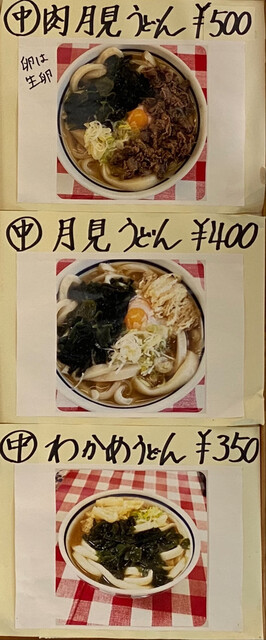 ㊥肉月見うどん ¥500
卵は
生卵
㊥月見うどん ¥400
㊥わかめうどん ¥350